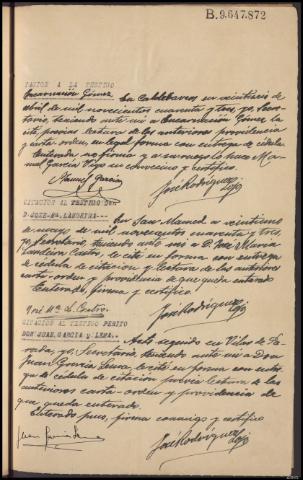 B.9.647.872
CITACION A LA TESTIGO
Encarnación Gómez. En Caldebarcos a veintitres de
abril de mil novecientos cuarenta y tres, yo, Secre-
tario, teniendo ante mi a Encarnación Gómez la
cité previa lectura de los anteriores providencia
y carta-orden en legal forma con entrega de cédula
Enterada no firma y a su ruego lo hace Ma-
nuel García convecino y certifico
Manuel García
José Rodríguez
CITACION AL TESTIGO DON
D. JOSE Mª. LAMEIRA.-- En San Mamed a veintiuno
de mayo de mil novecientos cuarenta y tres,
yo Secretario, teniendo ante mi a D. José María
Castro, le cité en forma con entrega
de cédula de citación y lectura de las anteriores
carta-orden y providencia de que queda
enterado, firma y certifico
José Mª de Castro
José Rodríguez
CITACION AL TESTIGO PERITO
DON JUAN GARCIA Y LEMA.- Acto seguido en Vilar de
yo, Secretario, teniendo ante mi a Don
Juan García Lema, le cité en forma con entre-
ga de cédula de citación previa lectura de las
anteriores carta-orden y providencia de
que queda enterado.
Enterado pues, firma conmigo y certifico
Juan García Lema
José Rodríguez